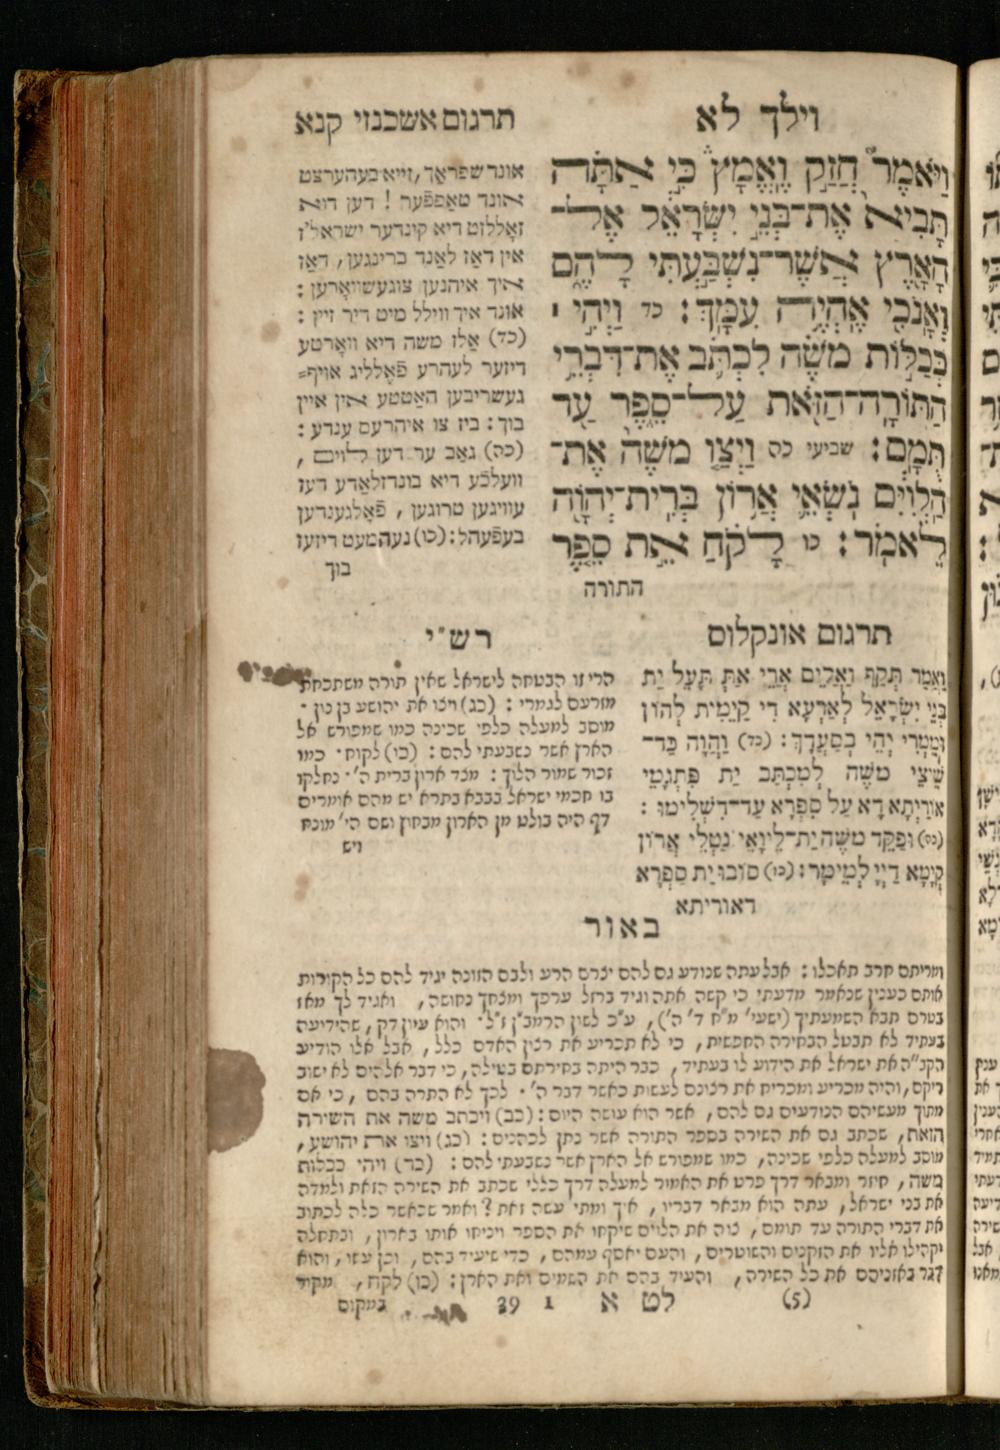 וילך לא
תרגום אשכנזי קנא
וַיֹּאמֶר חֲזַק וֶאֱמָץ כִּי אַתָּה
תָּבִיא אֶת־בְּנֵי יִשְׂרָאֵל אֶל־
הָאָרֶץ אֲשֶׁר־נִשְׁבַּעְתִּי לָהֶם
וְאָנֹכִי אֶהְיֶה עִמָּךְ׃ כד וַיְהִי ׀
כְּכַלּוֹת מֹשֶׁה לִכְתֹּב אֶת־דִּבְרֵי
הַתּוֹרָה־הַזֹּאת עַל־סֵפֶר עַד
תֻּמָּם׃ שביעי כה וַיְצַו מֹשֶׁה אֶת־
הַלְוִיִּם נֹשְׂאֵי אֲרוֹן בְּרִית־יְהוָה
לֵאמֹר׃ כו לָקֹחַ אֵת סֵפֶר
התורה
אונד שפראַך, זייא בעהערצט
אונד טאַפפֿער ! דען דוא
זאָללזט דיא קינדער ישראל'ז
אין דאַז לאַנד ברינגען, דאַז
איך איהנען צוגעשוואָרען :
אונד איך ווילל מיט דיר זיין :
(כד) אַלז משה דיא וואָרטע
דיזער לעהרע פֿאָלליג אויף=
געשריבען האַטטע אין איין
בוך : ביז צו איהרעם ענדע :
(כה) גאַב ער דען לוים,
וועלכֿע דיא בונדזלאַדע דעז
עוויגען טרוגען, פֿאָלגענדען
בעפֿעהל : (כו) נעהמעט דיזעז
בוך
תרגום אונקלוס
וַאֲמַר תְּקַף וַאֲלֵים אֲרֵי אַתְּ תָּעֵל יַת
בְּנֵי יִשְׂרָאֵל לְאַרְעָא דִי קַיֵּמִית לְהוֹן
וּמֵימְרִי יְהֵי בְסַעֲדָךְ : (כד) וַהֲוָה כַּד־
שֵׁיצֵי משֶׁה לְמִכְתַּב יַת פִּתְגָמֵי
אוֹרַיְתָא דָא עַל סִפְרָא עַד־דִשְׁלִימוּ :
(כה) וּפַקֵּד משֶׁה יַת־לֵיוָאֵי נָטְלֵי אֲרוֹן
קְיָמָא דַיְיָ לְמֵימָר : (כו) סוֹבוּ יַת סִפְרָא
דאוריתא
רש"י
הרי זו הבטחה לישראל שאין תורה משתכחת
מזרעם לגמרי : (כג) ויצו את יהושע בן נון ·
מוסב למעלה כלפי שכינה כמו שמפורש אל
הארץ אשר נשבעתי להם : (כו) לקוח · כמו
זכור שמור הלוך : מצד ארון ברית ה' · נחלקו
בו חכמי ישראל בבבא בתרא יש מהם אומרים
דף היה בולט מן הארון מבחוץ ושם הי' מונח
ויש
באור
ומריתם חרב תאכלו : אבל עתה שנודע גם להם יצרם הרע ולבם הזונה יגיד להם כל הקורות
אותם כענין שנאמר מדעתי כי קשה אתה וגיד ברזל ערפך ומצחך נחושה, ואגיד לך מאז
בטרם תבא השמעתיך (ישעי' מ"ח ד' ה'), ע"כ לשון הרמב"ן ז"ל · והוא עיון דק, שהידיעה
בעתיד לא תבטל הבחירה החפשית, כי לא תכריע את רצון האדם כלל, אבל אלו הודיע
הקב"ה את ישראל את הידוע לו בעתיד, כבר היתה בחירתם בטילה, כי דבר אלהים לא ישוב
ריקם, והיה מכריע ומכריח את רצונם לעשות כאשר דבר ה' · לכך לא התרה בהם, כי אם
מתוך מעשיהם הנודעים גם להם, אשר הוא עושה היום : (כב) ויכתב משה את השירה
הזאת, שכתב גם את השירה בספר התורה אשר נתן לכהנים : (כג) ויצו את יהושע,
מוסב למעלה כלפי שכינה, כמו שמפורש אל הארץ אשר נשבעתי להם : (כד) ויהי ככלות
משה, חוזר ומבאר דרך פרט את האמור למעלה דרך כללי שכתב את השירה הזאת ולמדה
את בני ישראל, עתה הוא מבאר דבריו, איך ומתי עשה זאת ? ואמר שכאשר כלה לכתוב
את דברי התורה עד תומם, צוה את הלוים שיקחו את הספר ויניחו אותו בארון, ובתחלה
יקהילו אליו את הזקנים והשוטרים, והעם יאסף עמהם, כדי שיעיד בהם, וכן עשו, והוא
דבר באזניהם את כל השירה, והעיד בהם את השמים ואת הארץ : (כו) לקח, מקור
(5) לט א 1 39 במקום